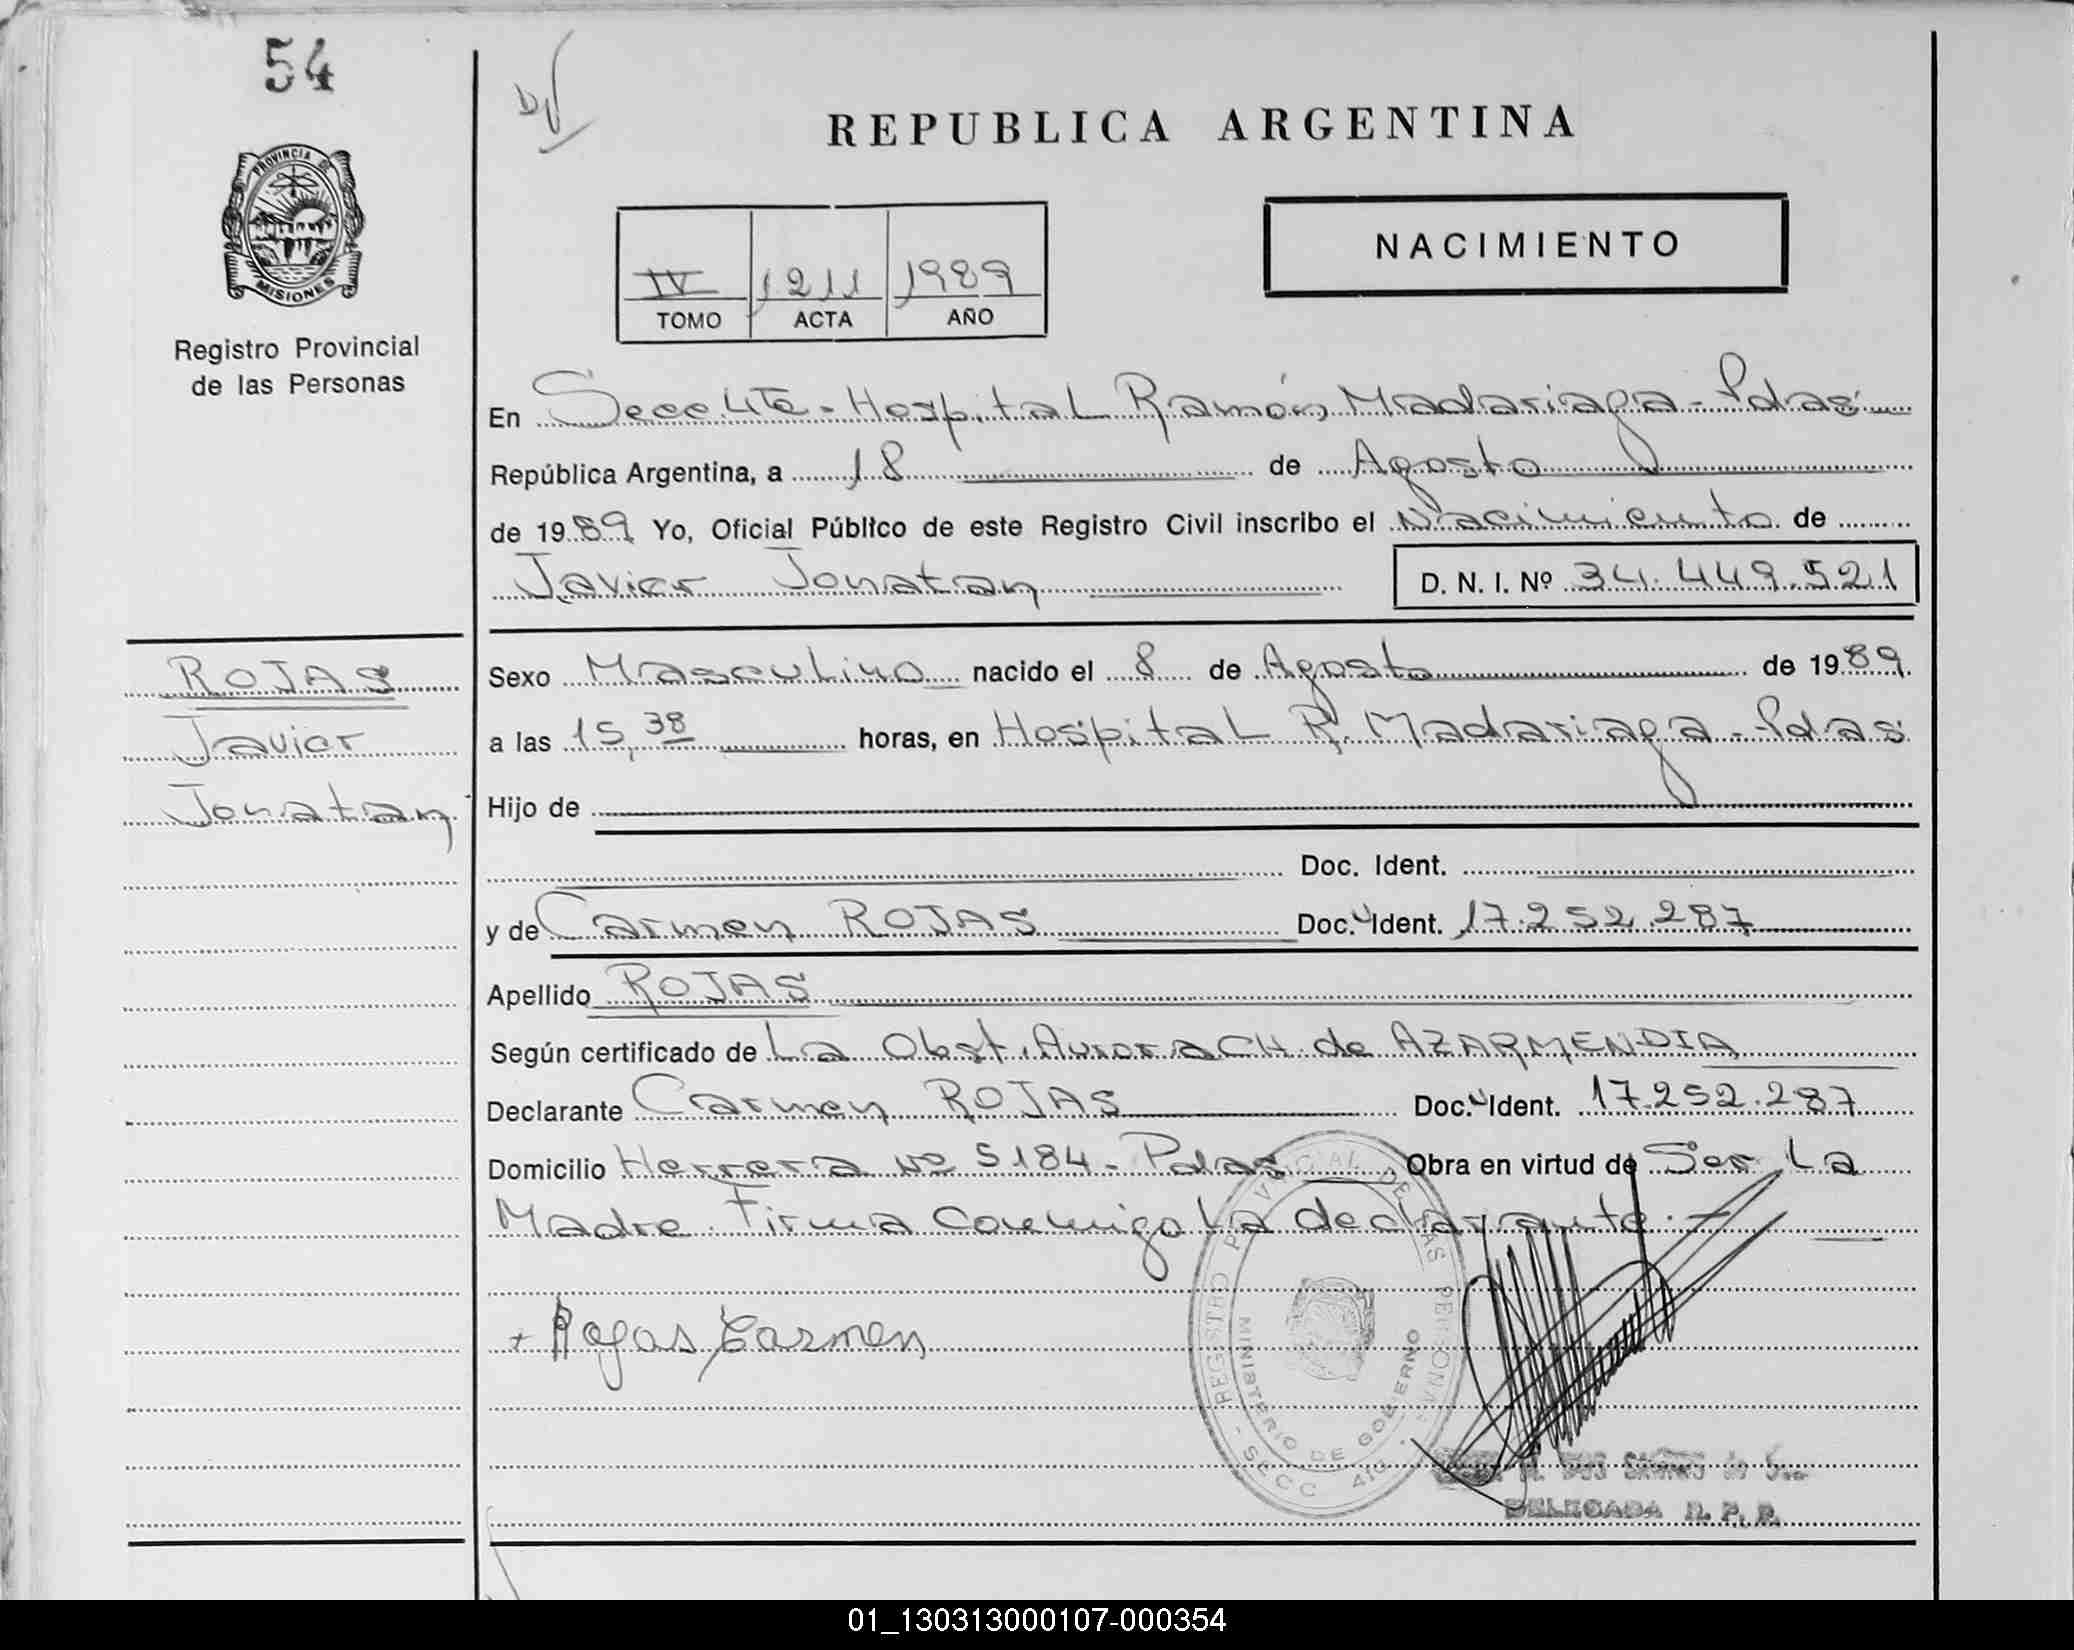 54
REPUBLICA ARGENTINA
PROVINCIA DE
MISIONES
Registro Provincial
de las Personas
NACIMIENTO
IV 1211 1989
TOMO ACTA AÑO
En Secc. 4ta - Hospital Ramón Madariaga - Pdas
República Argentina, a 18 de Agosto
de 1989 Yo, Oficial Público de este Registro Civil inscribo el Nacimiento de
Javier Jonatan D. N. I. Nº 34.449.521
ROJAS
Javier
Jonatan
Sexo Masculino nacido el 8 de Agosto de 1989
a las 15,38 horas, en Hospital R. Madariaga - Pdas
Hijo de
Doc. Ident.
y de Carmen ROJAS Doc. Ident. 17.252.287
Apellido ROJAS
Según certificado de La Obst. Aurora CH. de AZARMENDIA
Declarante Carmen ROJAS Doc. Ident. 17.252.287
Domicilio Herrera Nº 5184 - Pdas Obra en virtud de Ser La
Madre. Firma Conmigo La declarante. -
+ Rojas Carmen
REGISTRO PROVINCIAL DE LAS PERSONAS
MINISTERIO DE GOBIERNO
- SECC 4ta -
DOS SANTOS de
DELEGADA R. P. P.
01_130313000107-000354